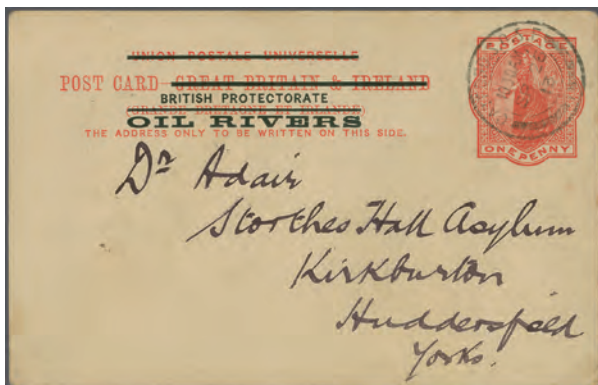 UNION POSTALE UNIVERSELLE
POST CARD-GREAT BRITAIN & IRELAND
BRITISH PROTECTORATE
(GRANDE BRETAGNE ET IRLANDE)
OIL RIVERS
THE ADDRESS ONLY TO BE WRITTEN ON THIS SIDE.
POSTAGE
ONE PENNY
Dr Adair
Storthes Hall Asylum
Kirkburton
Huddersfield
Yorks.